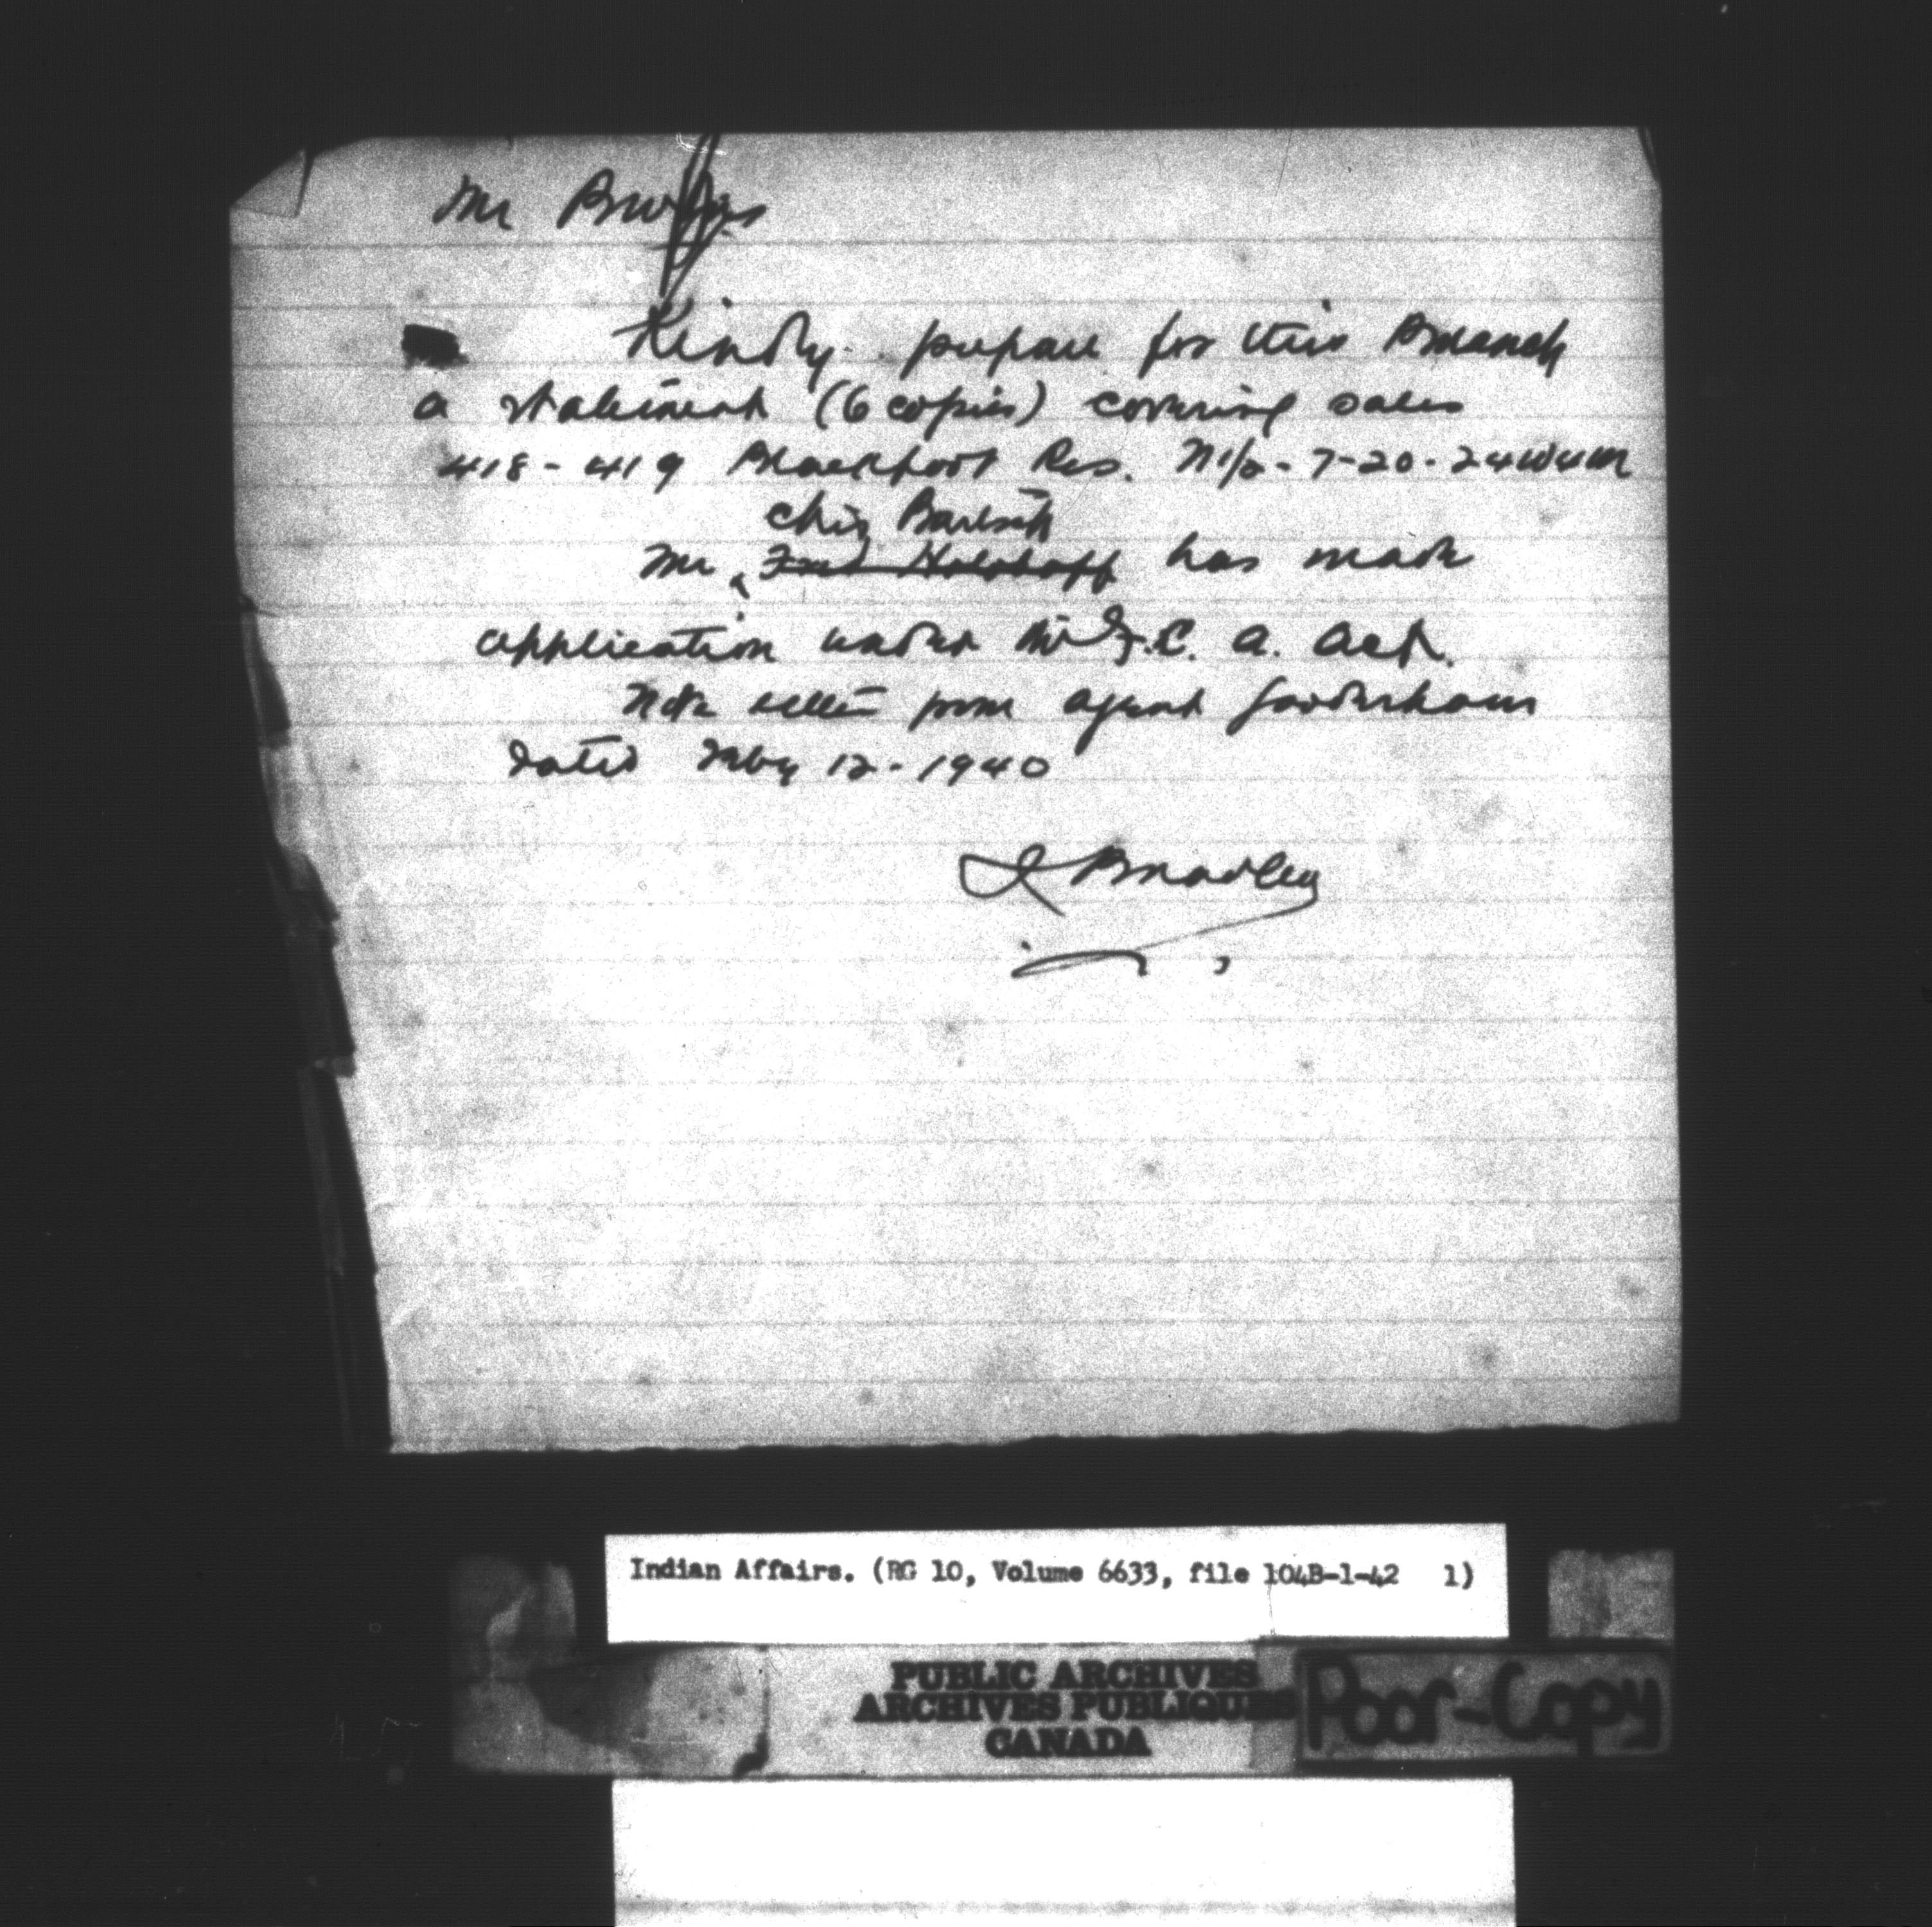 Mr
Kindly prepare for this Branch
a statement (6 copies) covering sales
418-419 Blackfoot Res. N½-7-20-24W4M
Bartsch
Mr Fred Holohoff has made
application under F.C.A. Act.
Note letter from Agent Gooderham
dated May 12-1940
Bradley
Indian Affairs. (RG 10, Volume 6633, file 104B-1-42 1)
PUBLIC ARCHIVES
ARCHIVES PUBLIQUES
CANADA
Poor-Copy